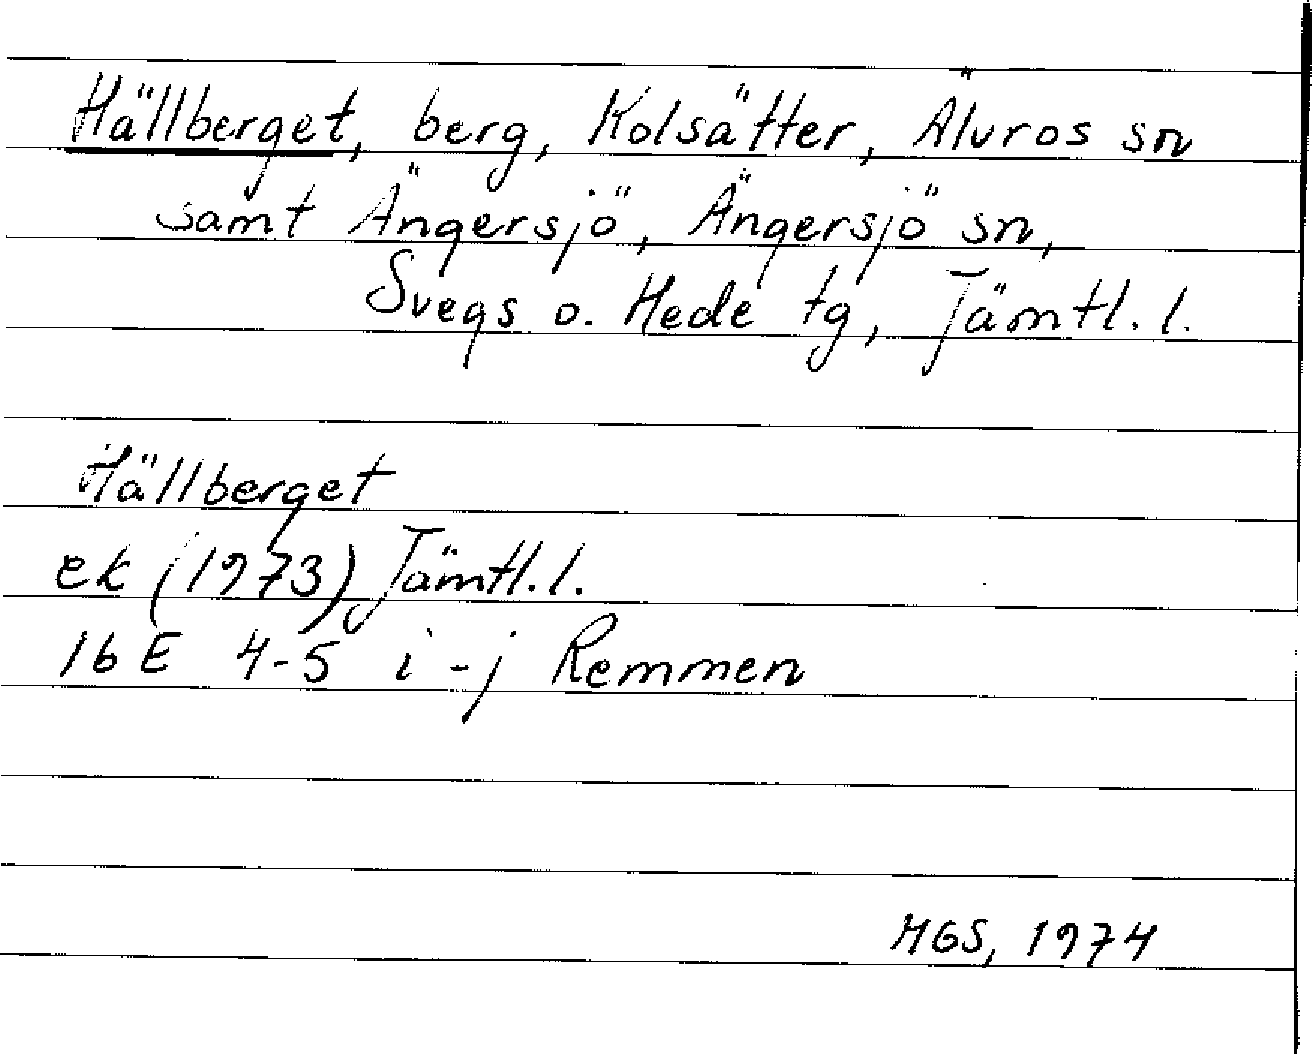 Hällberget, berg, Kolsätter, Älvros sn
samt Ängersjö, Ängersjö sn,
Svegs o. Hede tg, Jämtl. l.
Hällberget
ek (1973) Jämtl. l.
16 E 4-5 i-j Remmen
MGS, 1974